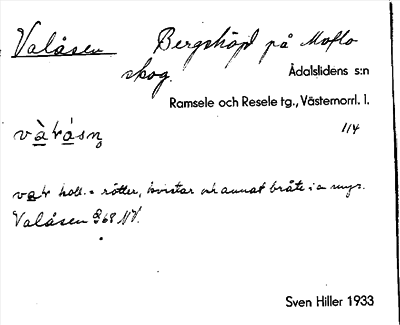 Valåsen Bergshöjd på Moflo
skog. Ådalslidens s:n
Ramsele och Resele tg., Västernorrl. l.
114
vàl·ásn̥
val koll. = rötter, kvistar och annat bråte i a myr.
Valåsen 68 NV.
Sven Hiller 1933